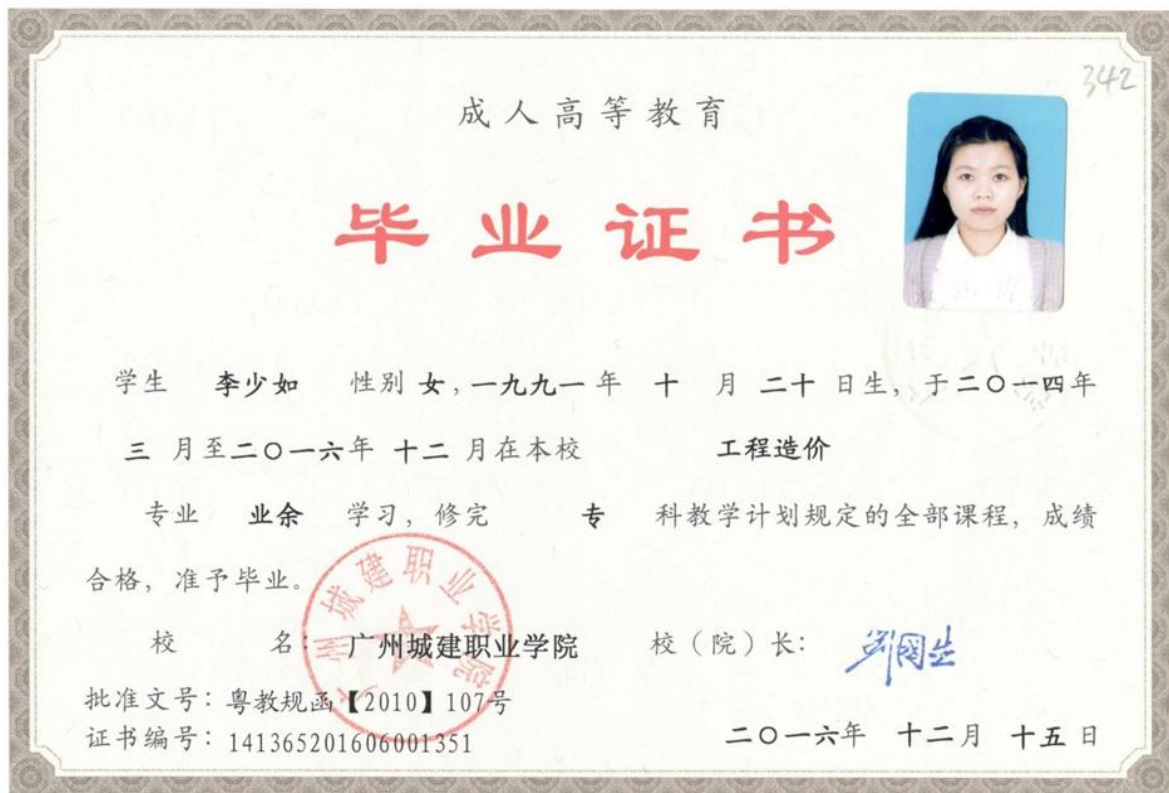 342
成人高等教育
毕业证书
学生 李少如 性别 女,一九九一 年 十 月 二十 日生,于二〇一四年
三 月至二〇一六年 十二 月在本校 工程造价
专业 业余 学习,修完 专 科教学计划规定的全部课程,成绩
合格,准予毕业。
广州城建职业学院
校 名:广州城建职业学院 校(院)长:
批准文号:粤教规函【2010】107号
证书编号:141365201606001351 二〇一六年 十二月 十五 日